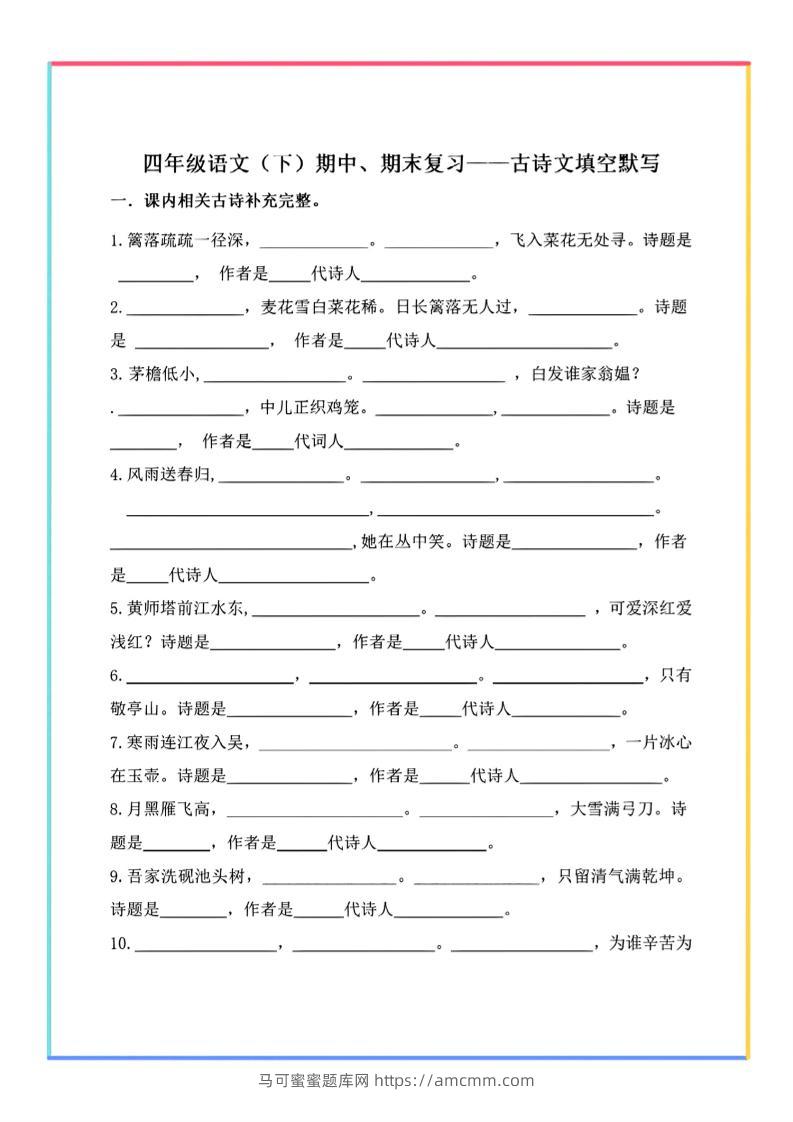 四年级语文（下）期中、期末复习——古诗文填空默写
一．课内相关古诗补充完整。
1.篱落疏疏一径深，_____________。_____________，飞入菜花无处寻。诗题是
_________， 作者是_____代诗人_____________。
2.______________，麦花雪白菜花稀。日长篱落无人过，_____________。诗题
是 ________________， 作者是_____代诗人_____________________。
3. 茅檐低小,_________________。_________________ ，白发谁家翁媪？
._______________，中儿正织鸡笼。______________,_____________。诗题是
________， 作者是_____代词人_____________。
4.风雨送春归,_______________。________________,__________________。
_____________________________,_________________________________。
_____________________________,她在丛中笑。诗题是_______________，作者
是_____代诗人__________________。
5.黄师塔前江水东,____________________。__________________ ，可爱深红爱
浅红？诗题是_______________，作者是_____代诗人_______________。
6.____________________，____________________。__________________，只有
敬亭山。诗题是_______________，作者是_____代诗人_____________。
7.寒雨连江夜入吴，_______________________。_________________，一片冰心
在玉壶。诗题是_______________，作者是______代诗人_________________。
8.月黑雁飞高，_____________________。________________，大雪满弓刀。诗
题是________，作者是______代诗人_____________。
9.吾家洗砚池头树，________________。_______________，只留清气满乾坤。
诗题是________，作者是______代诗人_____________。
10._________________，_________________。_________________，为谁辛苦为
马可蜜蜜题库网 https://amcmm.com